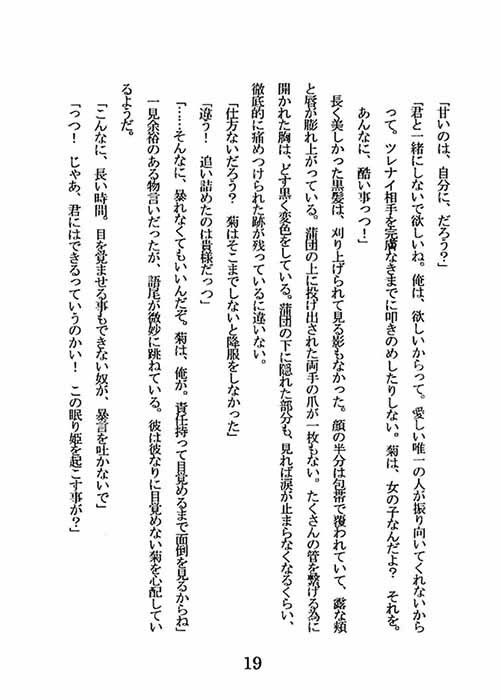 「甘いのは、自分に、だろう？」
「君と一緒にしないで欲しいね。俺は、欲しいからって。愛しい唯一の人が振り向いてくれないから
って。ツレナイ相手を完膚なきまでに叩きのめしたりしない。菊は、女の子なんだよ？　それを。
あんなに、酷い事っっ！」
　長く美しかった黒髪は、刈り上げられて見る影もなかった。顔の半分は包帯で覆われていて、露な頬
と唇が膨れ上がっている。蒲団の上に投げ出された両手の爪が一枚もない。たくさんの管を繋げる為に
開かれた胸は、どす黒く変色をしている。蒲団の下に隠れた部分も、見れば涙が止まらなくなるくらい、
徹底的に痛めつけられた跡が残っているに違いない。
「仕方ないだろう？　菊はそこまでしないと降服をしなかった」
「違う！　追い詰めたのは貴様だっつ」
「……そんなに、暴れなくてもいいんだぞ。菊は、俺が。責任持って目覚めるまで面倒を見るからね」
　一見余裕のある物言いだったが、語尾が微妙に跳ねている。彼は彼なりに目覚めない菊を心配してい
るようだ。
「こんなに、長い時間。目を覚ませる事もできない奴が、暴言を吐かないで」
「っつ！　じゃあ、君にはできるっていうのかい！　この眠り姫を起こす事が？」
19